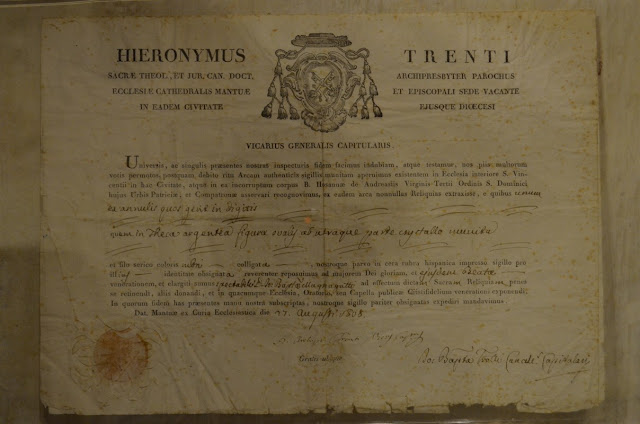 HIERONYMUS TRENTI
SACRÆ THEOL., ET JUR. CAN. DOCT. ARCHIPRESBYTER PAROCHUS
ECCLESIÆ CATHEDRALIS MANTUÆ ET EPISCOPALI SEDE VACANTE
IN EADEM CIVITATE EJUSQUE DIŒCESI
VICARIUS GENERALIS CAPITULARIS.
Universis, ac singulis præsentes nostras inspecturis fidem facimus indubiam, atque testamur, nos piis multorum
votis permotos, postquam, debito ritu Arcam authenticis sigillis munitam aperuimus existentem in Ecclesia interiore S. Vin-
centii in hac Civitate, atque in ea incorruptum corpus B. Hosannæ de Andreasiis Virginis Tertii Ordinis S. Dominici
hujus Urbis Patriciæ, et Compatronæ asservari recognovimus, ex eadem arca nonnullas Reliquias extraxisse, e quibus unum
de annulis quos gerit in digitis
quem in theca argentea figura ovali ab utraque parte crystallo munita
et filo serico coloris colligata nostroque parvo in cera rubra hispanica impresso sigillo pro
illius identitate obsignata reverenter reposuimus ad majorem Dei gloriam, et ejusdem Beatæ
venerationem, et elargiti sumus ad effectum dictam Sacram Reliquiam penes
se retinendi, aliis donandi, et in quacumque Ecclesia, Oratorio, seu Capella publicæ Christifidelium venerationi exponendi.
In quorum fidem has præsentes manu nostra subscriptas, nostroque sigillo pariter obsignatas expediri mandavimus.
Dat. Mantuæ ex Curia Ecclesiastica die 27. Augusti
Gratis ubique
Jo. Bapta